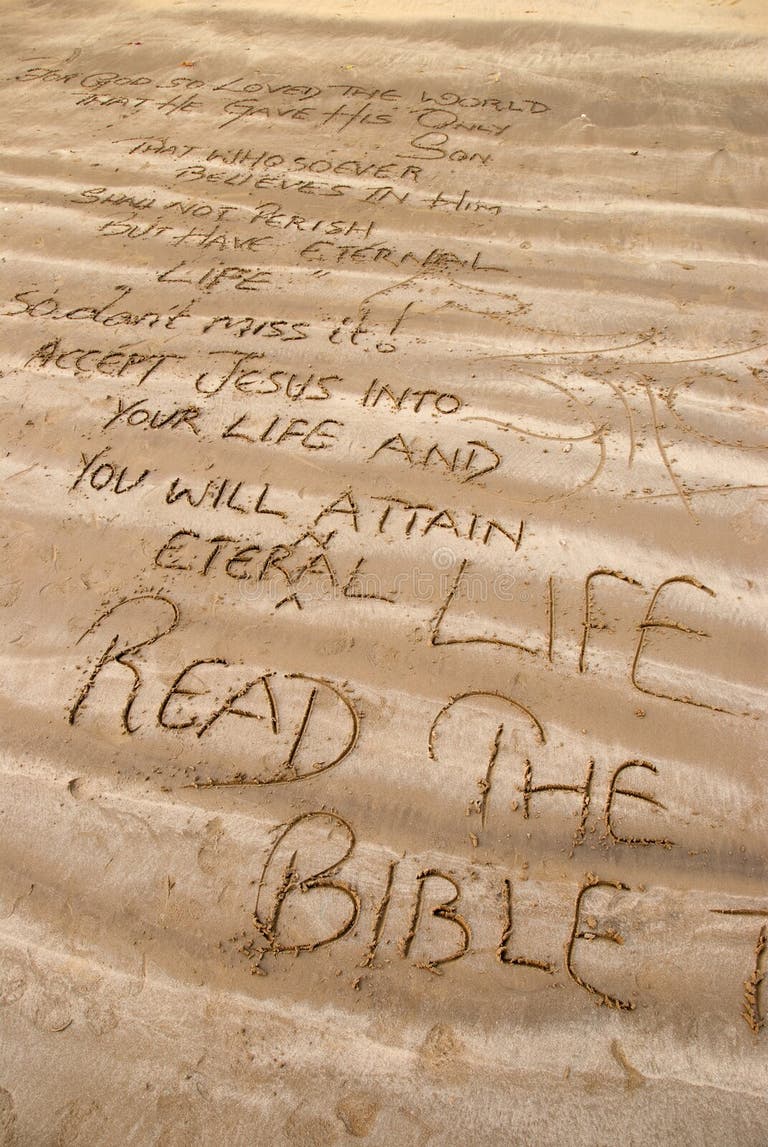 FOR GOD SO LOVED THE WORLD
THAT HE GAVE HIS ONLY
SON
THAT WHOSOEVER
BELIEVES IN HIM
SHALL NOT PERISH
BUT HAVE ETERNAL
LIFE "
So don't miss it!
ACCEPT JESUS INTO
YOUR LIFE AND
YOU WILL ATTAIN
N
ETERAL LIFE
READ THE
BIBLE T
dreamstime.com